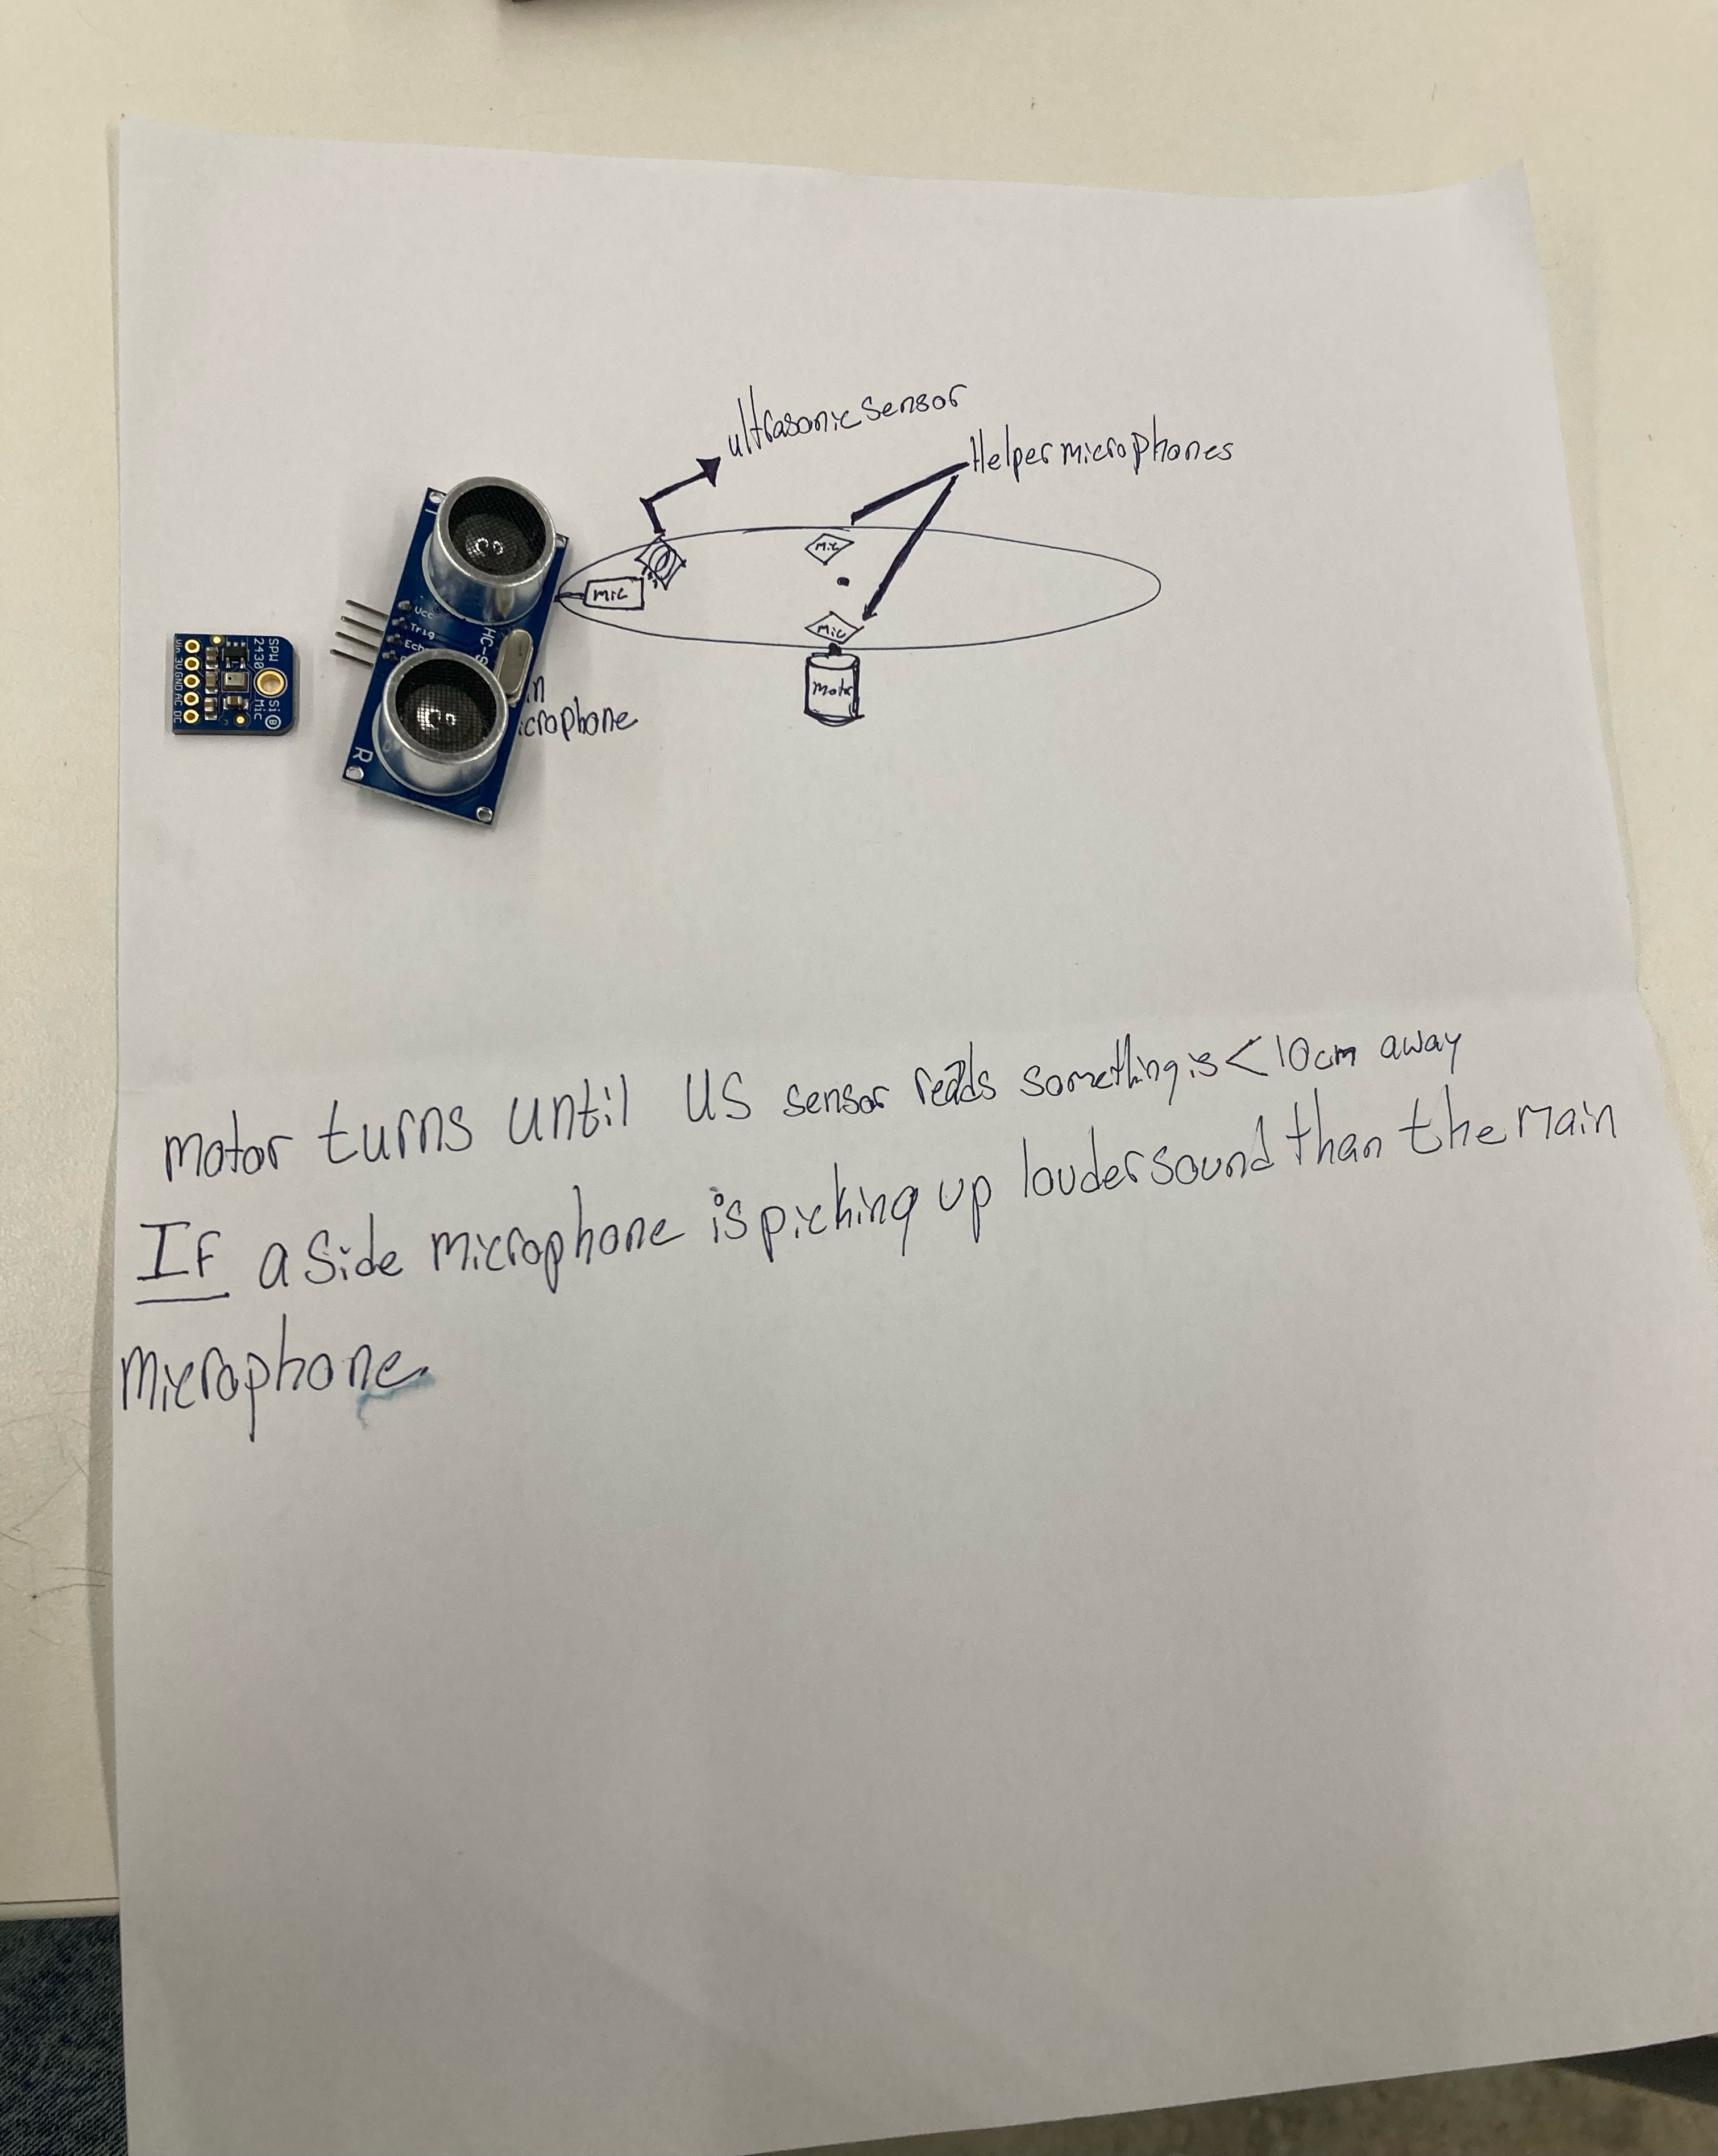 ultrasonic sensor
Helper microphones
Mic
Mic
Mic
Motor
in
icrophone
Vcc
Trig
Ech
HC-S
T
R
SPW
2430
Si
Mic
Vin
3V
GND
AC
DC
motor turns until US sensor reads something is < 10cm away
IF a side microphone is picking up louder sound than the main
microphone.